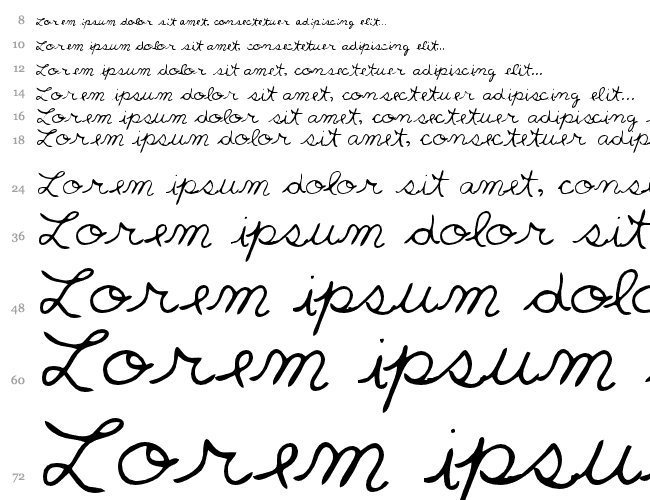 8 Lorem ipsum dolor sit amet, consectetuer adipiscing elit...
10 Lorem ipsum dolor sit amet, consectetuer adipiscing elit...
12 Lorem ipsum dolor sit amet, consectetuer adipiscing elit...
14 Lorem ipsum dolor sit amet, consectetuer adipiscing elit...
16 Lorem ipsum dolor sit amet, consectetuer adipiscing
18 Lorem ipsum dolor sit amet, consectetuer adip
24 Lorem ipsum dolor sit amet, cons
36 Lorem ipsum dolor sit
48 Lorem ipsum dolo
60 Lorem ipsum
72 Lorem ipsu